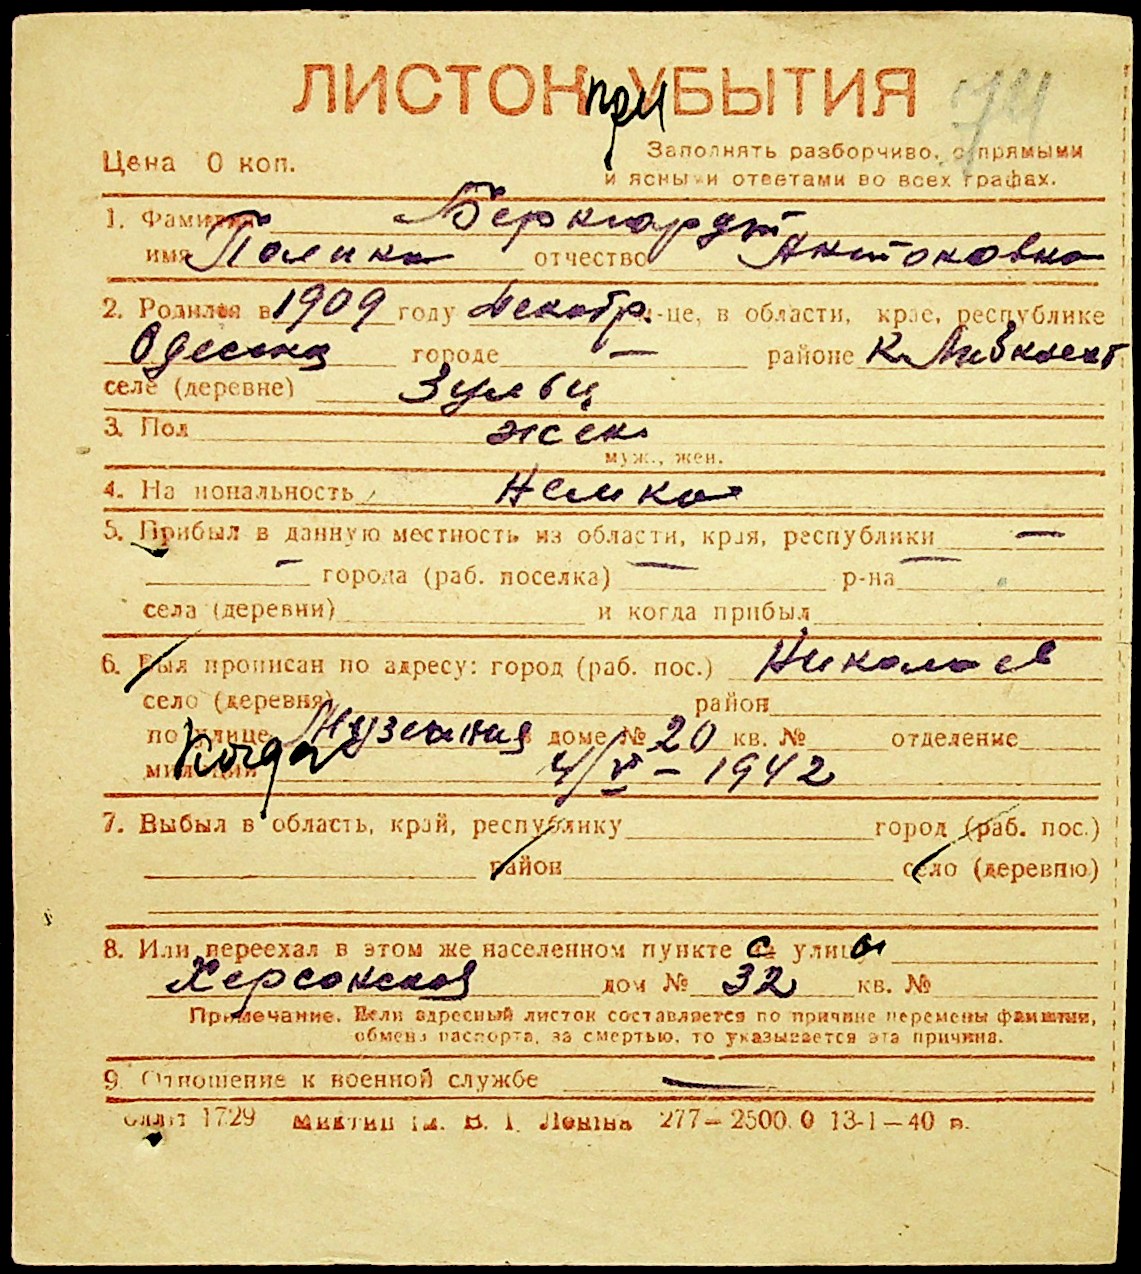 ЛИСТОК УБЫТИЯ
при
74
Цена 0 коп.
Заполнять разборчиво, с прямыми
и ясными ответами во всех графах.
1. Фамилия Бернгардт
имя Полина отчество Антоновна
2. Родился в 1909 году Декабр. м-це, в области, крае, республике
Одесская городе — районе К. Либкнехт
селе (деревне) Зульц
3. Пол жен.
муж., жен.
4. Национальность Немка
5. Прибыл в данную местность из области, края, республики —
— города (раб. поселка) — р-на —
села (деревни) и когда прибыл
6. Был прописан по адресу: город (раб. пос.) Николаев
село (деревня) район
по улице Музейная в доме № 20 кв. № отделение
милиции Когда 4/V – 1942
7. Выбыл в область, край, республику город (раб. пос.)
район село (деревню)
8. Или переехал в этом же населенном пункте с улицы
Херсонская дом № 32 кв. №
Примечание. Если адресный листок составляется по причине перемены фамилии,
обмена паспорта, за смертью, то указывается эта причина.
9. Отношение к военной службе —
1729 ім. В. І. Леніна 277–2500 0 13-1–40 в.